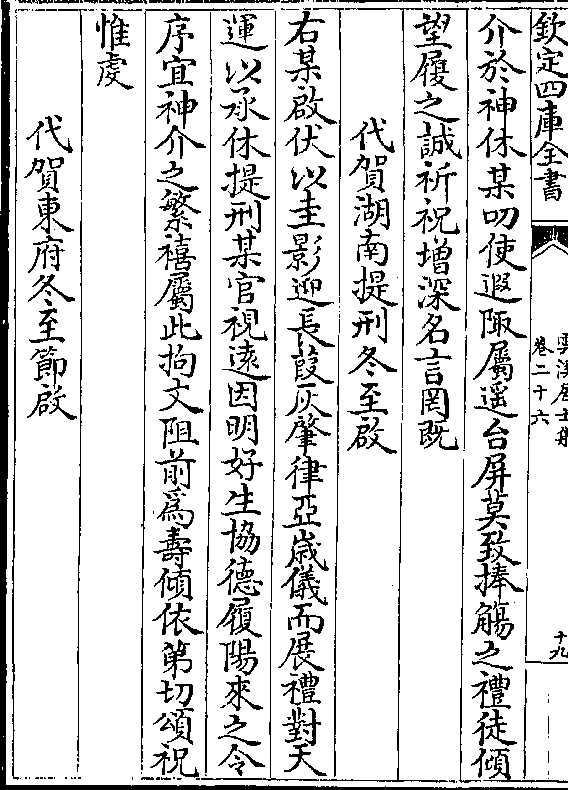 欽定四庫全書
雲溪居士集
卷二十六
十九
介於神休某叨使遐陬屬遥台屏莫致捧觴之禮徒傾
望履之誠祈祝增深名言罔既
代賀湖南提刑冬至啟
右某啟伏以圭影迎長葭灰肇律亞嵗儀而展禮對天
運以承休提刑某官視逺因明好生協德履陽來之令
序宜神介之繁禧屬此拘文阻前為壽傾依第切頌祝
惟虔
代賀東府冬至節啟